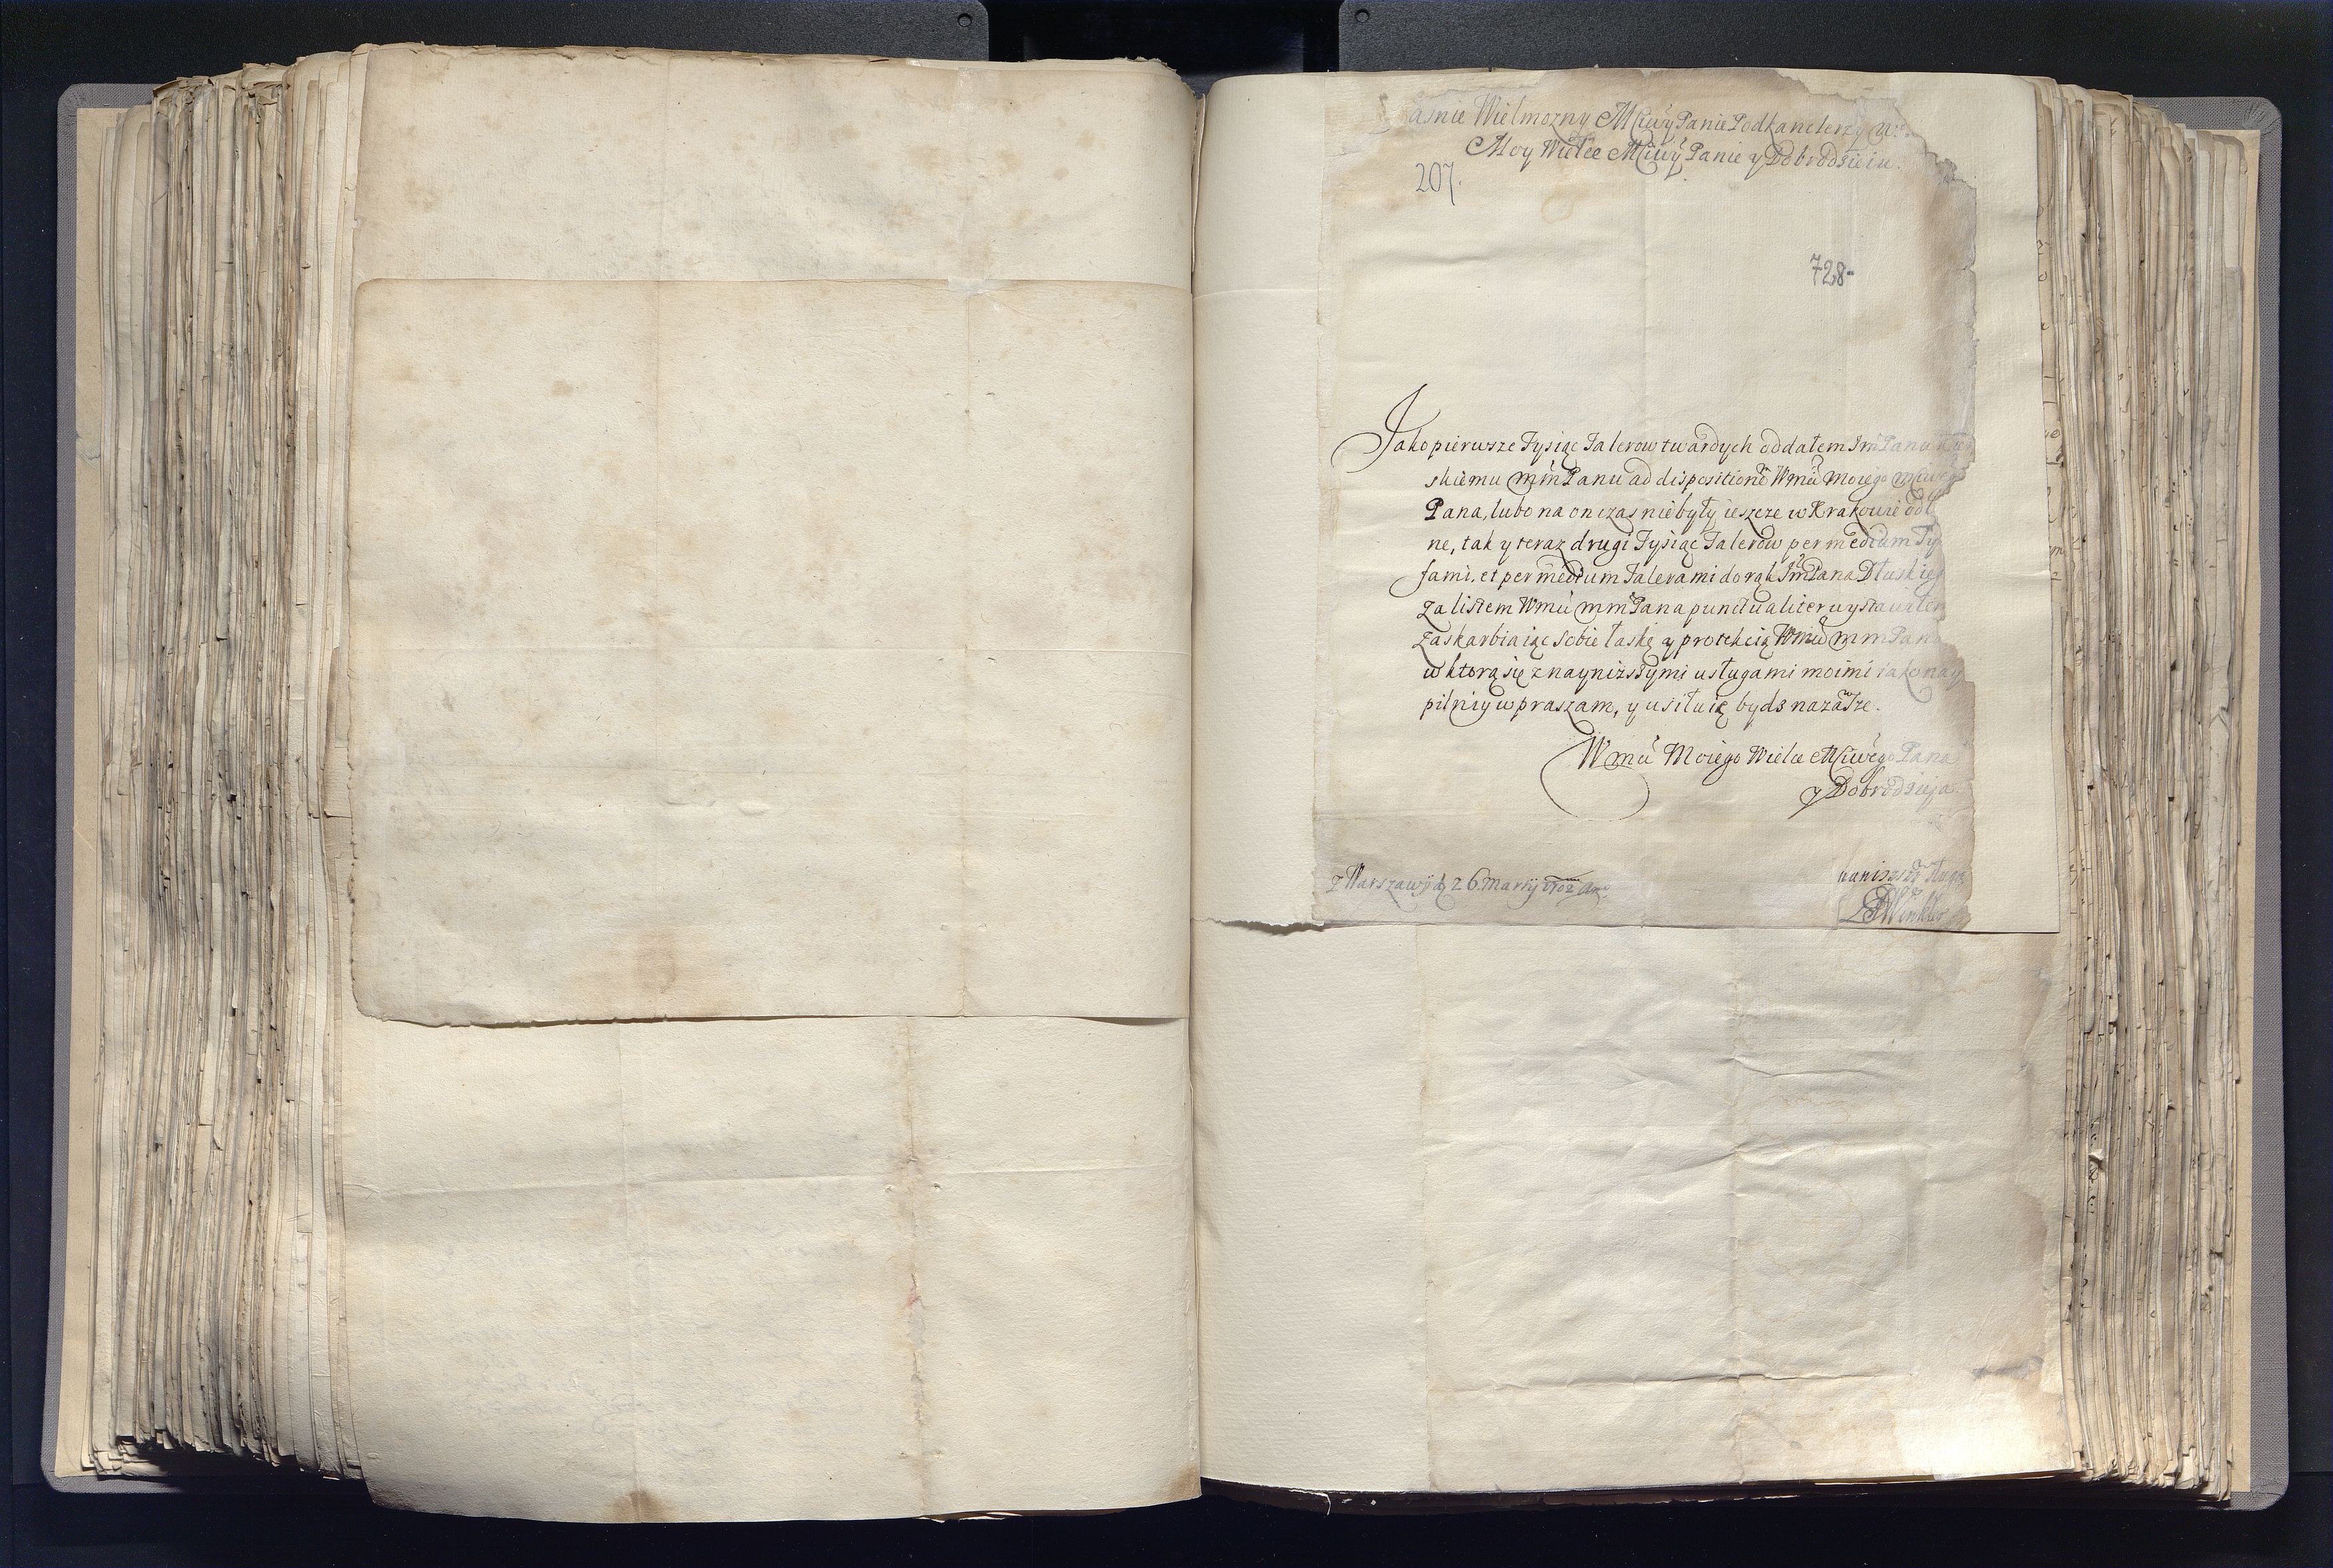 Jasnie Wielmozny Mciwy Panie Podkanclerzy
Moy Wielce Mciwy Panie y Dobrodzieiu.
207.
728
Jako pierwsze Tysiąc Talerow twardych oddałem Jm Panu
skiemu mm Panu ad dispositione Wmci Moiego mciwego
Pana, lubo na on czas niebyły ieszcze w Krakowie od
ne, tak y teraz drugi Tysiąc Talerow per medium Ty
fami, et per medium Talerami do rąk Jm Pana Dłuskieg
za listem Wmci mm Pana punctualiter wystawiłem
zaskarbiaiąc sobie łaskę y protekcią Wmci mm Pana
w ktorą się z nayniższymi usługami moimi iako nay
pilniy wpraszam, y usiłuię byds nazawsze.
Wmci Moiego Wielce Mciwego Pana
y Dobrodzieja
z Warszawy d 26 Martij 1702 Ao
uniższy sługa
Winkler